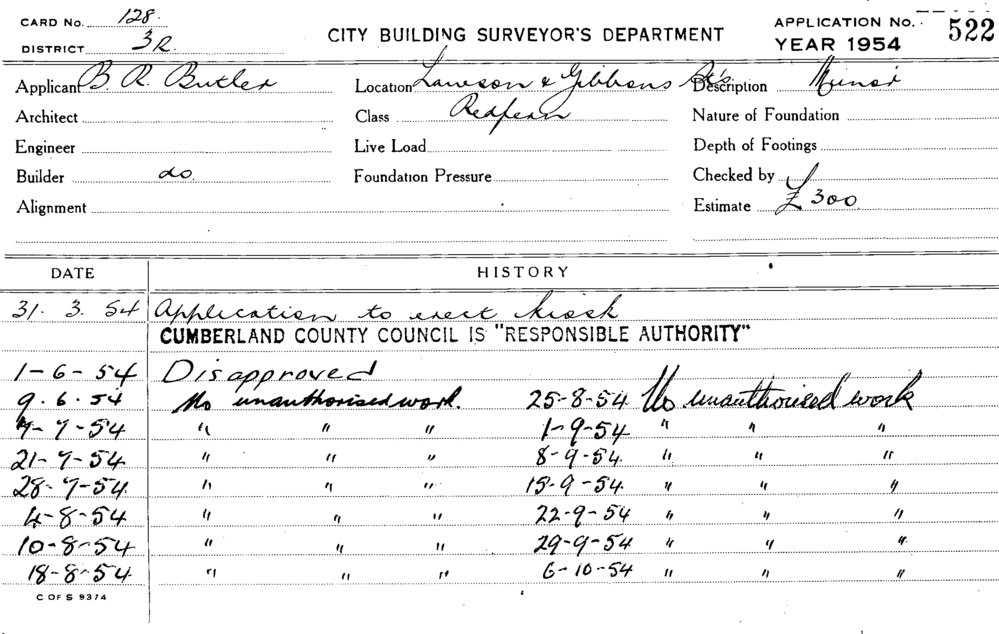 CARD No. 128. CITY BUILDING SURVEYOR'S DEPARTMENT APPLICATION No. 522
DISTRICT 3R. YEAR 1954
Applicant B. R. Butler Location Lawson & Gibbons Sts Description Minor
Architect Class Redfern Nature of Foundation
Engineer Live Load Depth of Footings
Builder do. Foundation Pressure Checked by
Alignment Estimate £300
DATE HISTORY
31. 3. 54 Application to erect kiosk
CUMBERLAND COUNTY COUNCIL IS "RESPONSIBLE AUTHORITY"
1-6-54 Disapproved
9.6.54 No unauthorised work. 25-8-54 No unauthorised work
7-7-54 " " " 1-9-54 " " "
21-7-54 " " " 8-9-54 " " "
28-7-54 " " " 15-9-54 " " "
4-8-54 " " " 22-9-54 " " "
10-8-54 " " " 29-9-54 " " "
18-8-54 " " " 6-10-54 " " "
C OF S 9374